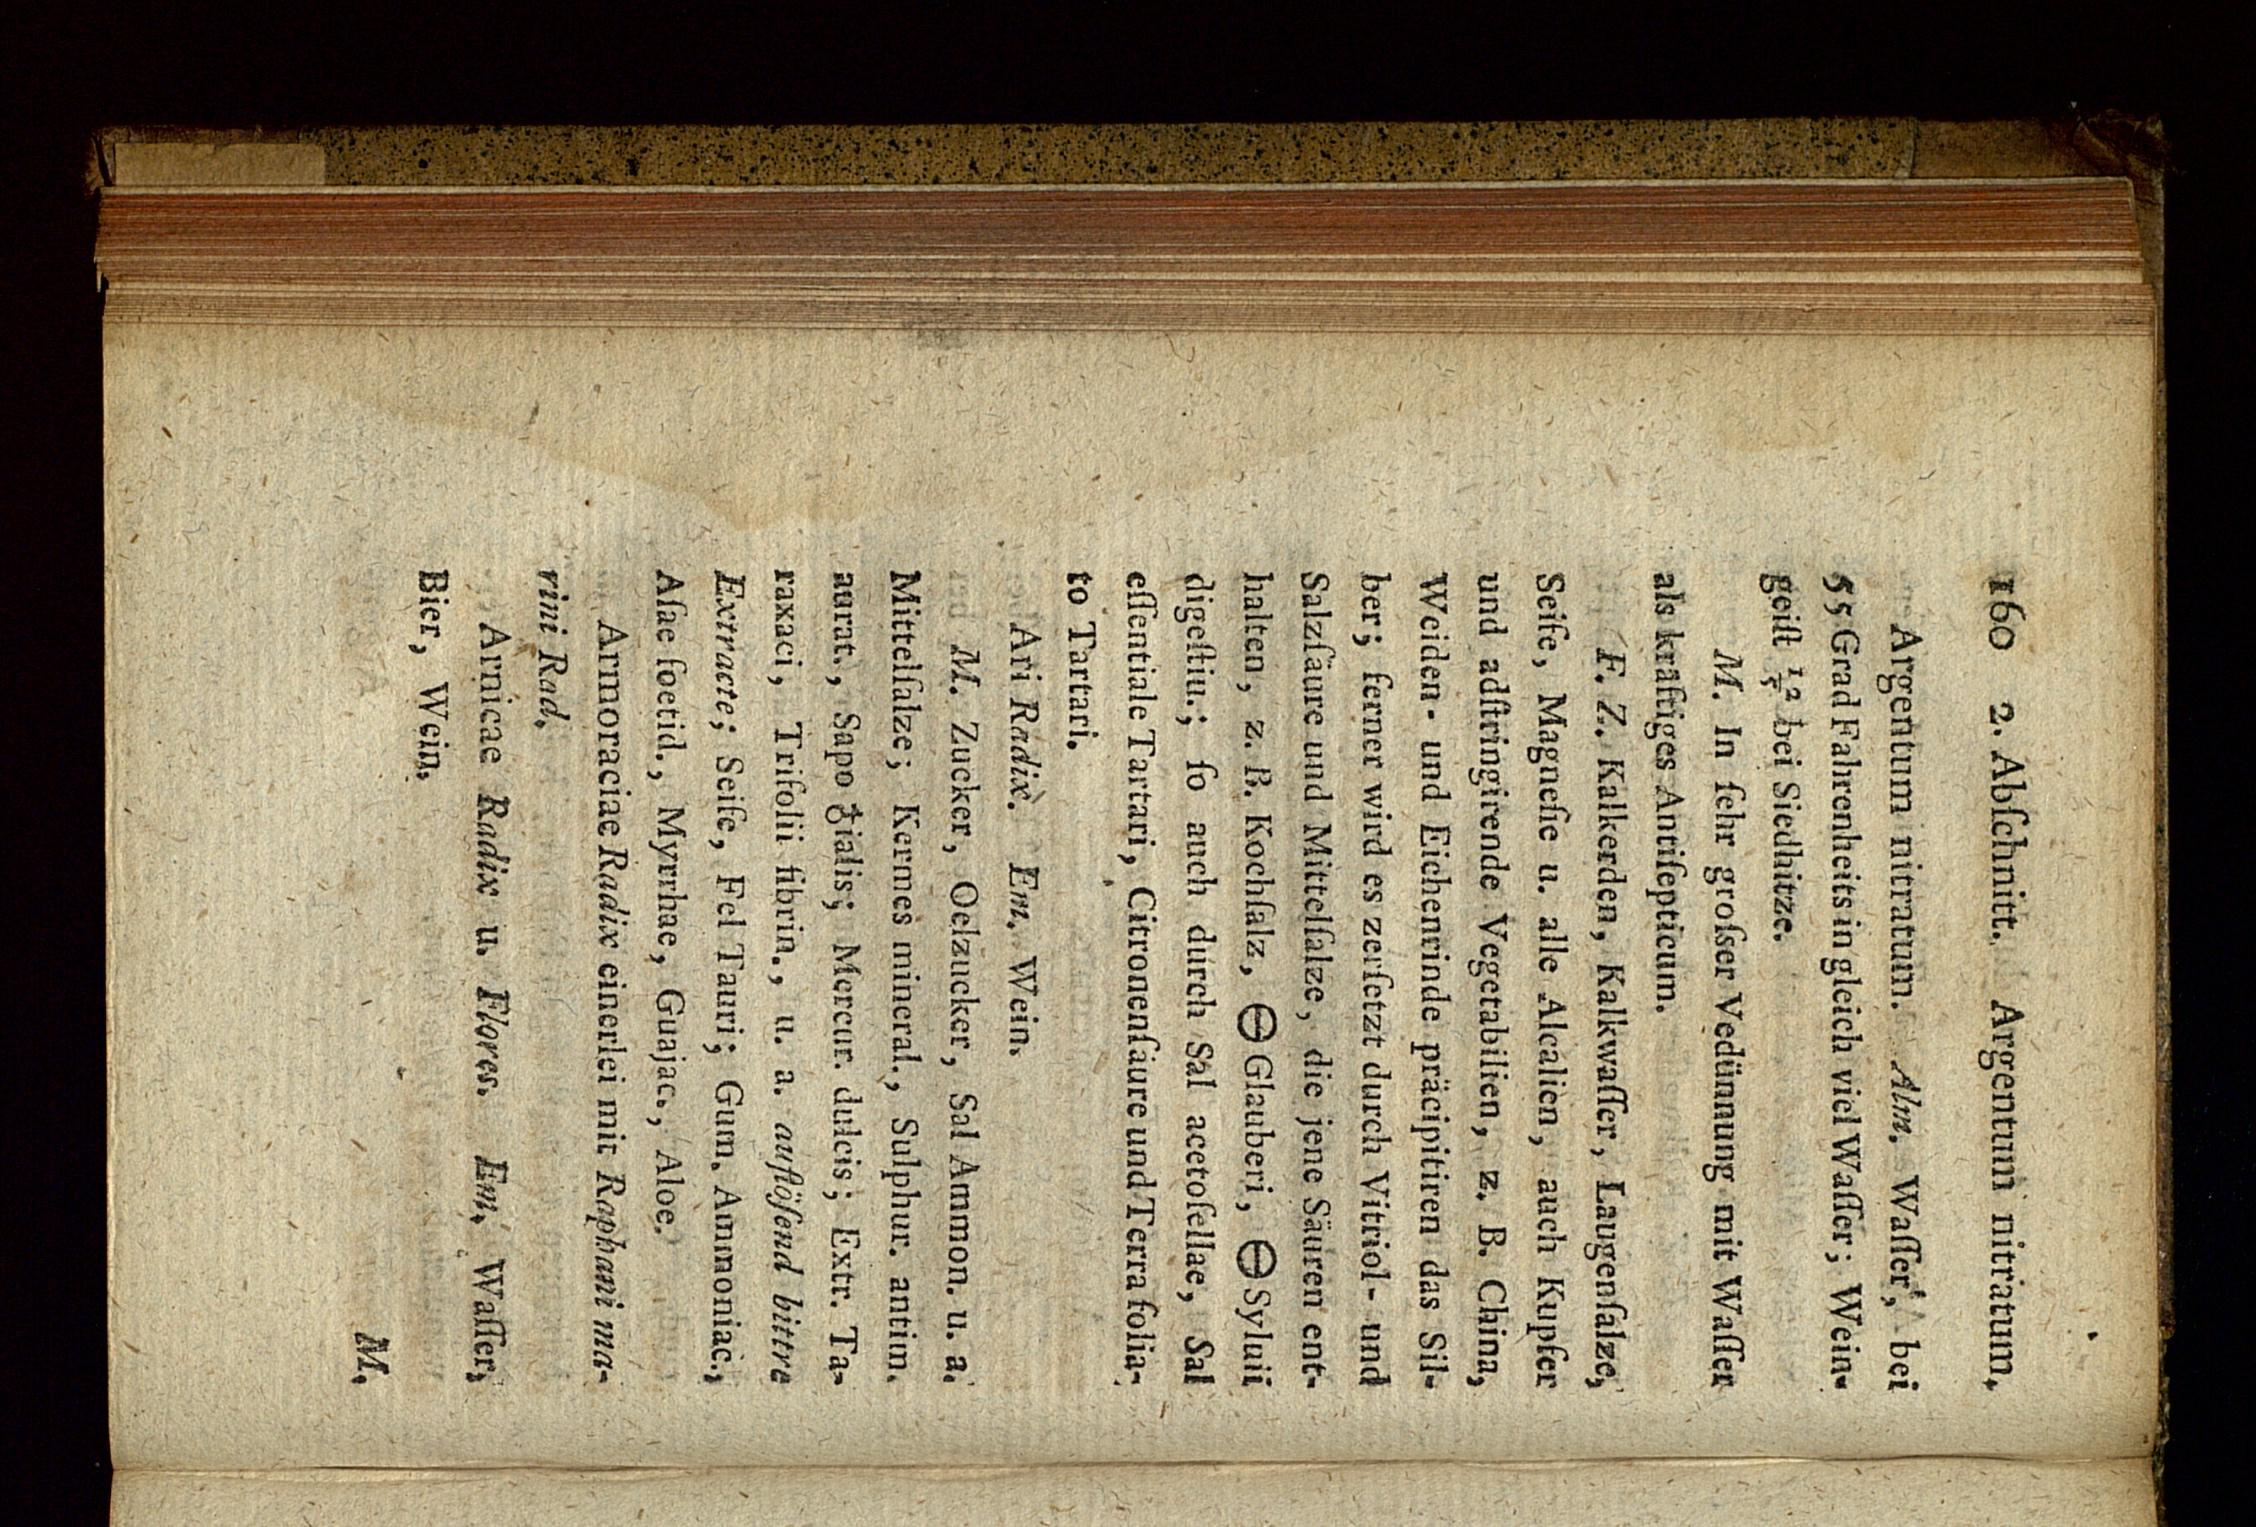 160 2. Abſchnitt. Argentum nitratum.
Argentum nitratum. Alm. Waſſer, bei
55 Grad Fahrenheits in gleich viel Waſſer; Wein-
geiſt 12/5 bei Siedhitze.
M. In ſehr groſser Vedünnung mit Waſſer
als kräftiges Antiſepticum.
F. Z. Kalkerden, Kalkwaſſer, Laugenſalze,
Seife, Magneſie u. alle Alcalien, auch Kupfer
und adſtringirende Vegetabilien, z. B. China,
Weiden- und Eichenrinde präcipitiren das Sil-
ber; ferner wird es zerſetzt durch Vitriol- und
Salzſäure und Mittelſalze, die jene Säuren ent-
halten, z. B. Kochſalz, 🜔 Glauberi, 🜔 Syluii
digeſtiu.; ſo auch durch Sal acetoſellae, Sal
eſſentiale Tartari, Citronenſäure und Terra folia-
to Tartari.
Ari Radix. Em. Wein.
M. Zucker, Oelzucker, Sal Ammon. u. a.
Mittelſalze; Kermes mineral., Sulphur. antim.
aurat., Sapo ♁ialis; Mercur. dulcis; Extr. Ta-
raxaci, Trifolii fibrin., u. a. auflöſend bittre
Extracte; Seife, Fel Tauri; Gum. Ammoniac.,
Aſae foetid., Myrrhae, Guajac., Aloe.
Armoraciae Radix einerlei mit Raphani ma-
rini Rad.
Arnicae Radix u. Flores. Em. Waſſer,
Bier, Wein.
M.